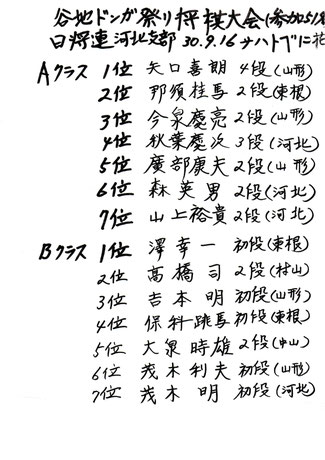 谷地ドンガ祭り将棋大会(参加51名
日将連河北支部 30.9.16 サハトベに花
Aクラス 1位 矢口喜朗 4段(山形)
2位 那須桂馬 2段(東根)
3位 今泉慶亮 2段(山形)
4位 秋葉慶次 3段(河北)
5位 廣部康夫 2段(山形)
6位 森英男 2段(河北)
7位 山上裕貴 2段(河北)
Bクラス 1位 澤幸一 初段(東根)
2位 高橋司 2段(村山)
3位 吉本明 初段(山形)
4位 保科跳馬 初段(東根)
5位 大泉時雄 2段(中山)
6位 茂木利夫 初段(山形)
7位 茂木明 初段(河北)